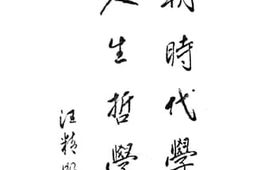 時代學
人生哲學
汪精